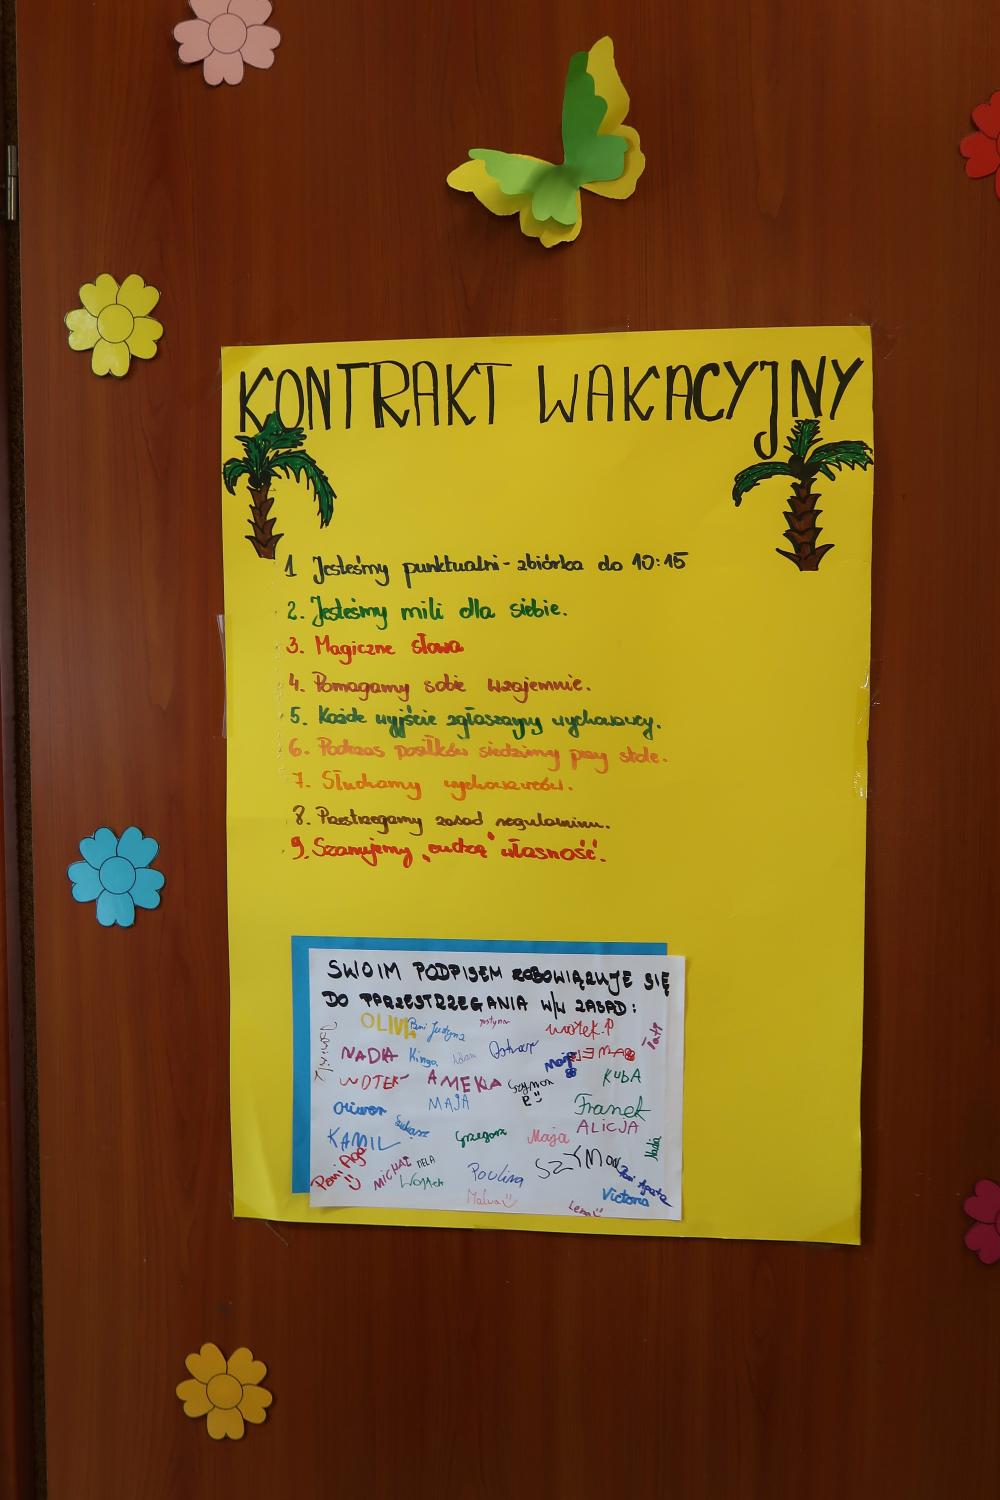 KONTRAKT WAKACYJNY
1 Jesteśmy punktualni - zbiórka do 10:15
2. Jesteśmy mili dla siebie.
3. Magiczne słowa
4. Pomagamy sobie wzajemnie.
5. Każde wyjście zgłaszamy wychowawcy.
6. Podczas posiłków siedzimy przy stole.
7. Słuchamy wychowawców.
8. Przestrzegamy zasad regulaminu.
9. Szanujemy „cudzą" własność.
SWOIM PODPISEM ZOBOWIĄZUJE SIĘ
DO PRZESTRZEGANIA W/W ZASAD:
OLIWIA Pani Justyna Justyna WOJTEK.P
NADIA Kinga Maja
AMELIA Szymon P KUBA
Oliwier MAJA Franek
ALICJA
KAMIL Łukasz Grzegorz Maja Nadia
Pani Aga MICHAŁ NELA Wojtek Paulina SZYMON Pani Agata
Malwa Lena Victoria